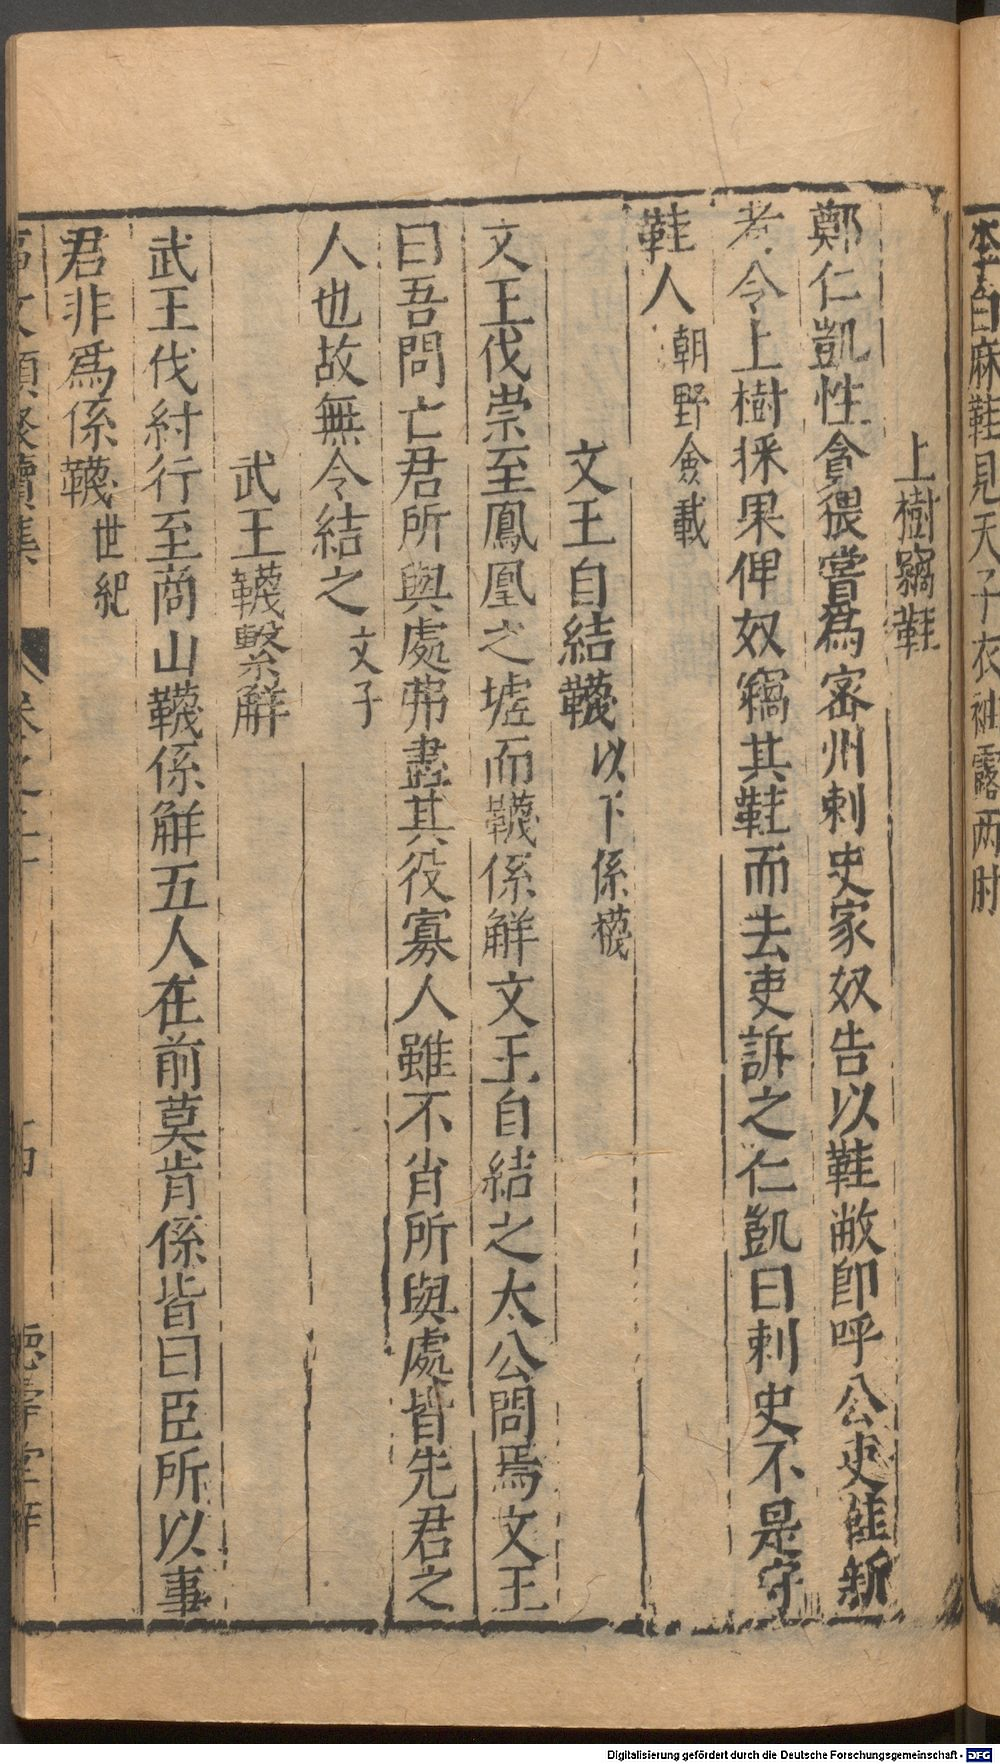 李白麻鞋見天子衣袖露两肘
上樹竊鞋
鄭仁凱性貪猥嘗爲密州刺史家奴告以鞋敝卽呼公吏鞋新
者令上樹採果俾奴竊其鞋而去吏訴之仁凱曰刺史不是守
鞋人 朝野僉載
文王自結韈 以下係襪
文王伐崇至鳳凰之墟而韈係觧文王自結之太公問焉文王
曰吾問亡君所與處弗盡其役寡人雖不肖所與處皆先君之
人也故無令結之 文子
武王韈繫觧
武王伐紂行至商山韈係觧五人在前莫肯係皆曰臣所以事
君非爲係韈 世紀
事文類聚續集 卷之二十 德壽堂梓
Digitalisierung gefördert durch die Deutsche Forschungsgemeinschaft - DFG